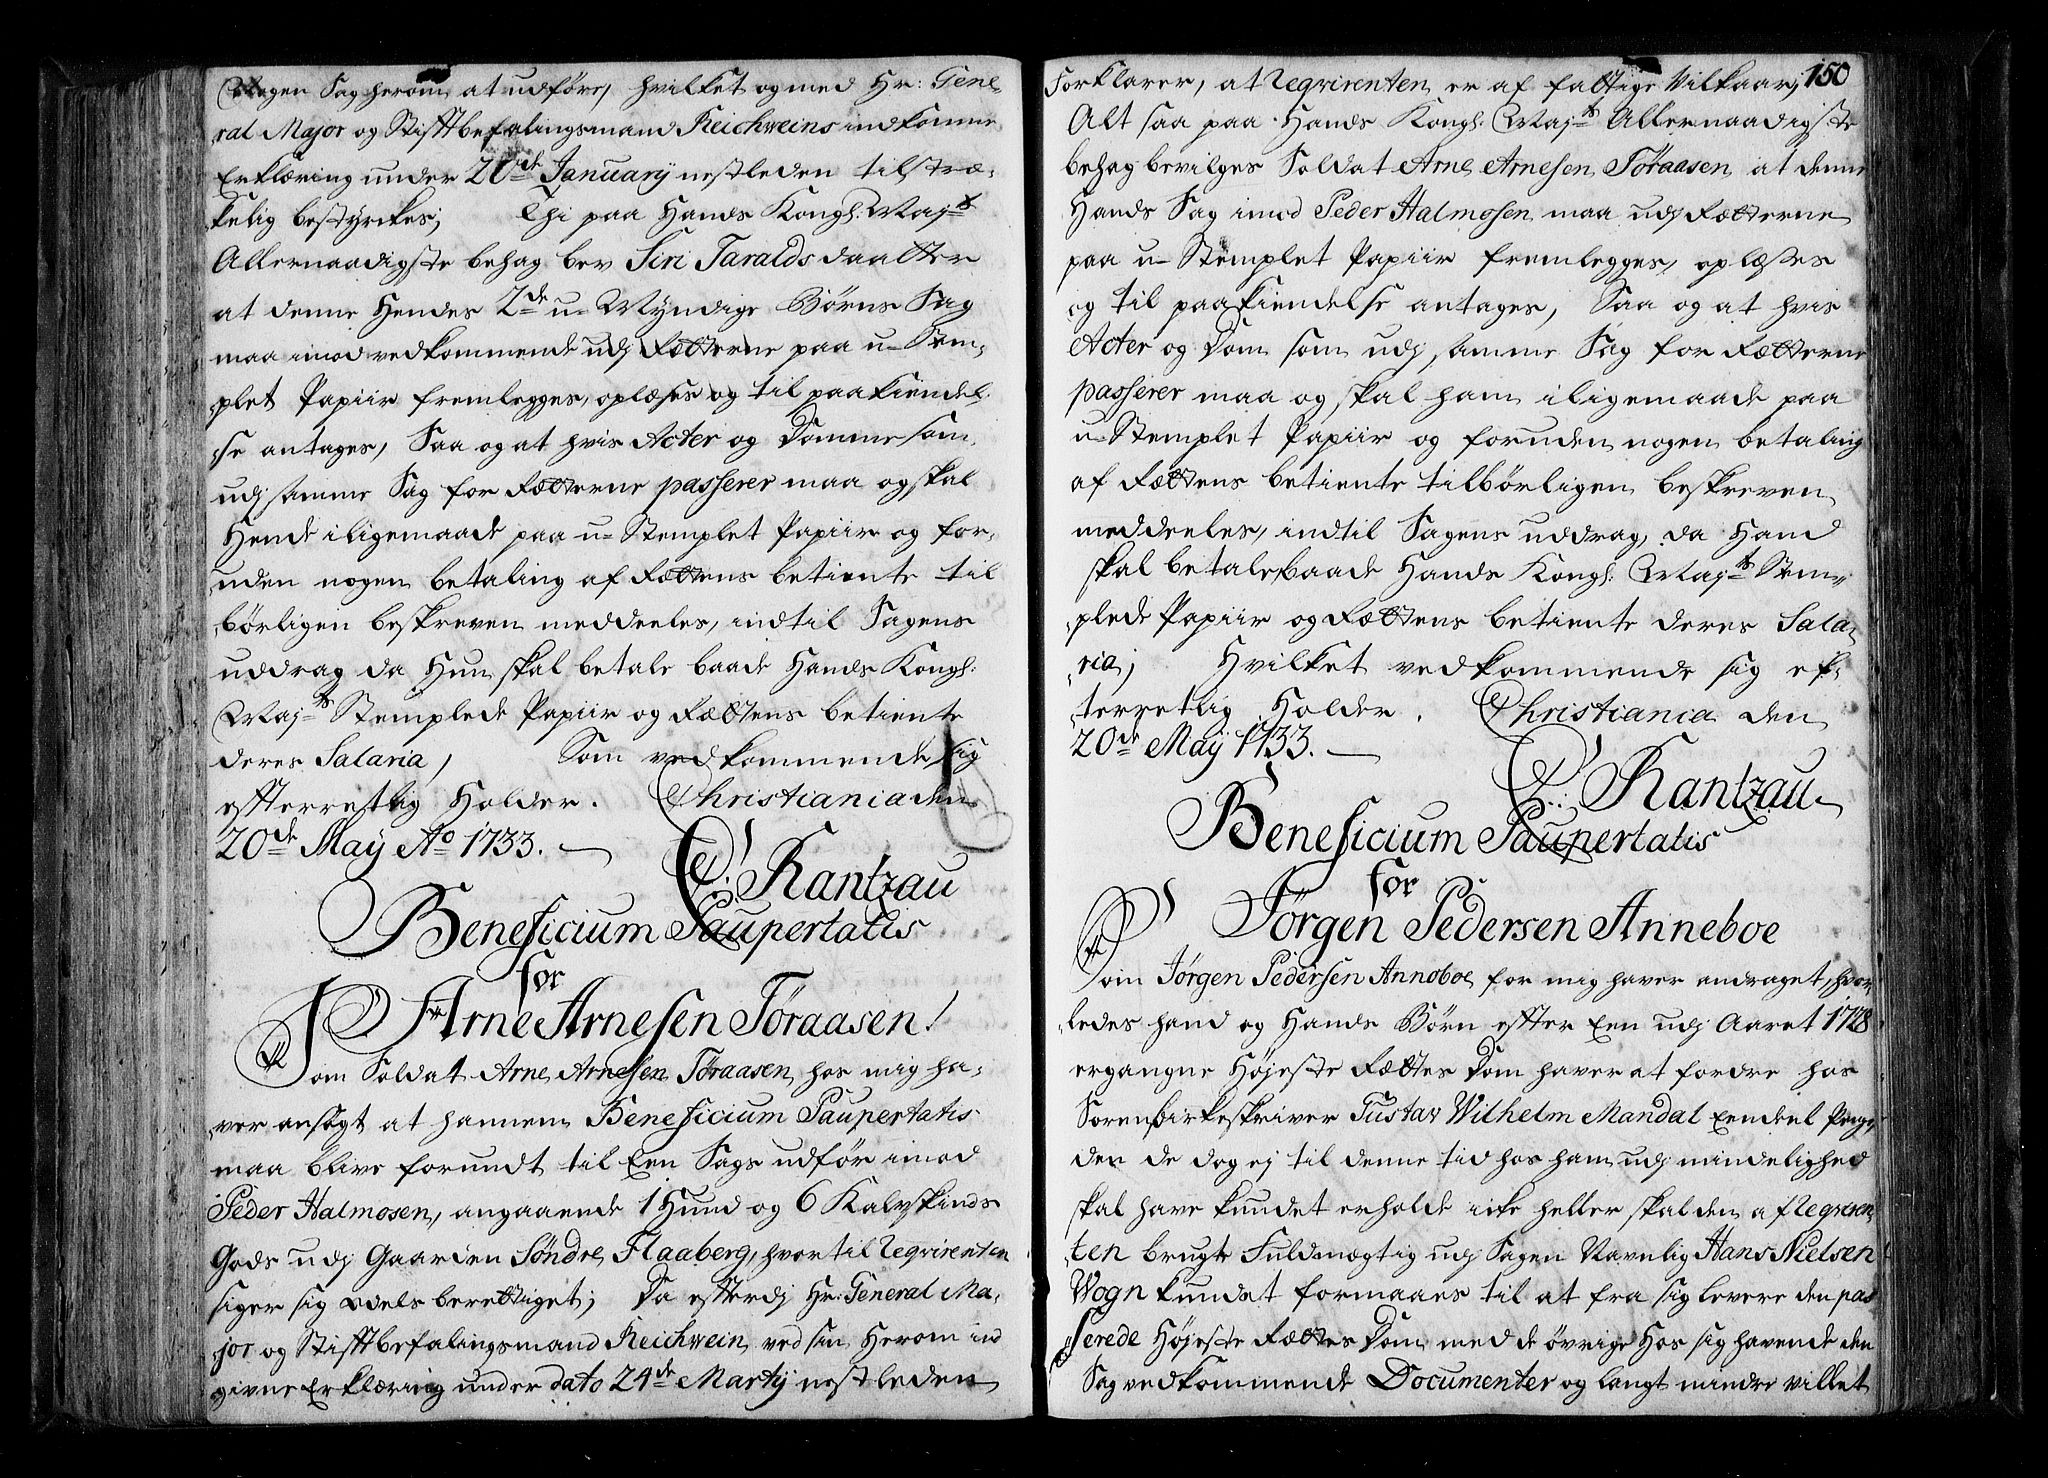 nogen Sag herom at udføre, hvilket og med Hr: Gene„
ral Major og Stiftbefalingsmand Reichweins indkomne
Erklæring under 20de January nestleden tilstræ„
kelig bestyrkes; Thi paa Hands Kongl: Mayts
Allernaadigste behag bev Siri Taralds daatter
at denne Hendes 2de u-Myndige Børns Sag
maa imod vedkommende udj Rætterne paa u-Stem„
plet Papiir fremlegges, oplæses og til paakiendel„
se antages, Saa og at hvis Acter og Domme som
udj samme Sag for Rætterne passerer maa og skal
Hende iligemaade paa u-Stemplet Papiir og for„
uden nogen betaling af Rættens betiente til
børligen beskreven meddeeles, indtil Sagens
uddrag da Hun skal betale baade Hands Kongl:
Mayts Stemplede Papiir og Rættens betiente
deres Salaria, Som vedkommende sig
efterrettlig Holder. Christiania den
20de May Ao 1733.
C: Rantzau
Beneficium Paupertatis
for
Arne Arnesen Töraasen.
Som Soldat Arne Arnesen Töraasen hos mig ha„
ver ansøgt at hannem Beneficium Paupertatis
maa blive forundt til Een Sags udfør imod
Peder Halmosen, angaaende 1 Hund og 6 Kalvskinds
Gods udj Gaarden Söndre Flaaberg, hvortil Reqvirenten
siger sig odels berettiget; Da efterdj Hr: General Ma„
jor og Stiftbefalingsmand Reichwein ved sin Herom ind
givne Erklæring under dato 24de Martij nestleden
150
Forklarer, at Reqvirenten er af fattige Vilkaar;
Alt saa paa Hands Kongl: Mayts Allernaadigste
behag bevilges Soldat Arne Arnesen Töraasen at denne
Hands Sag imod Peder Halmosen maa udj Rætterne
paa u-Stemplet Papiir fremlegges, oplæsses
og til paakiendelse antages, Saa og at hvis
Acter og Dom som udj samme Sag for Rætterne
passerer maa og skal ham iligemaade paa
u-Stemplet Papiir og foruden nogen betaling
af Rættens betiente tilbörligen beskreven
meddeeles, indtil Sagens uddrag, da Hand
skal betale baade Hands Kongl: Mayts Stem„
plede Papiir og Rættens betiente deres Sala„
ria; Hvilket vedkommende sig ef„
terretlig Holder. Christiania den
20de May 1733.
C: Rantzau
Beneficium Paupertatis
for
Jörgen Pedersen Anneboe
Som Jörgen Pedersen Anneboe for mig haver andraget, hvor„
ledes hand og Hands Börn efter Een udj Aaret 1728
ergangne Højeste Rættes Dom haver at fordre hos
Sorenbirkeskriver Gustav Wilhelm Mandal Eendeel Penge,
den de dog ej til denne tid hos ham udj mindelighed
skal have kundet erholde icke heller skal den af Reqviren„
ten brugte Fuldmægtig udj Sagen Navnlig Hans Nielsen
Vogn kundet formaaes til at fra sig levere den pas
serede Højeste Rættes Dom med de övrige Hos sig havende den
Sag vedkommende Documenter og langt mindre villet